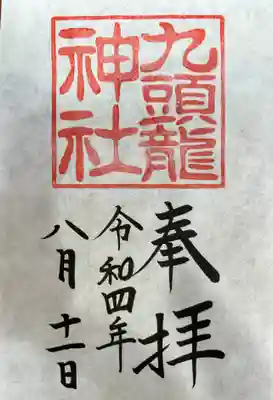 九頭龍
神社
奉拝
令和四年
八月十一日